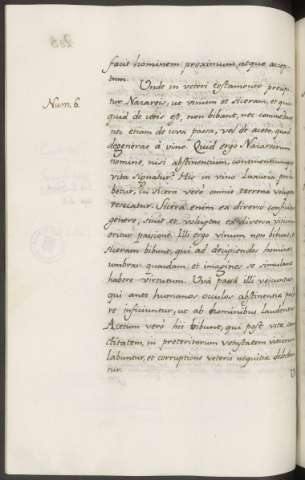 facit hominem proximum, atque accep-
tum.
Unde in veteri testamento precipi-
Num. 6.
tur Nazareis, ut vinum et siceram, et qui-
quid de uvis est, non bibant, nec comedant
nec etiam de uva passa, vel de aceto, quod
degenerat à vino. Quid ergo Nazareorum
nomine, nisi abstinentium, continentiumque
vita signatur? His in vino Luxuria, prohi-
betur, In sicera verò omnis terrena voluptas
resecatur. Sicera enim ex diverso conficitur
genere, sicut et voluptas ex diversa visione
oritur passione. Illi ergo vinum non bibunt, et
siceram bibunt, qui ad decipiendos homines
umbras quasdam, et imagines se simulant
habere virtutum. Uvâ passâ illi vescuntur
qui ante humanos oculos abstinentiâ
re inficiuntur, ut ab hominibus laudentur
Acetum verò hi bibunt, qui post vitæ san-
ctitatem, in preteritorum vetustatem vitiorum
labuntur, et corruptione veteris nequitiæ delectan-
tur.